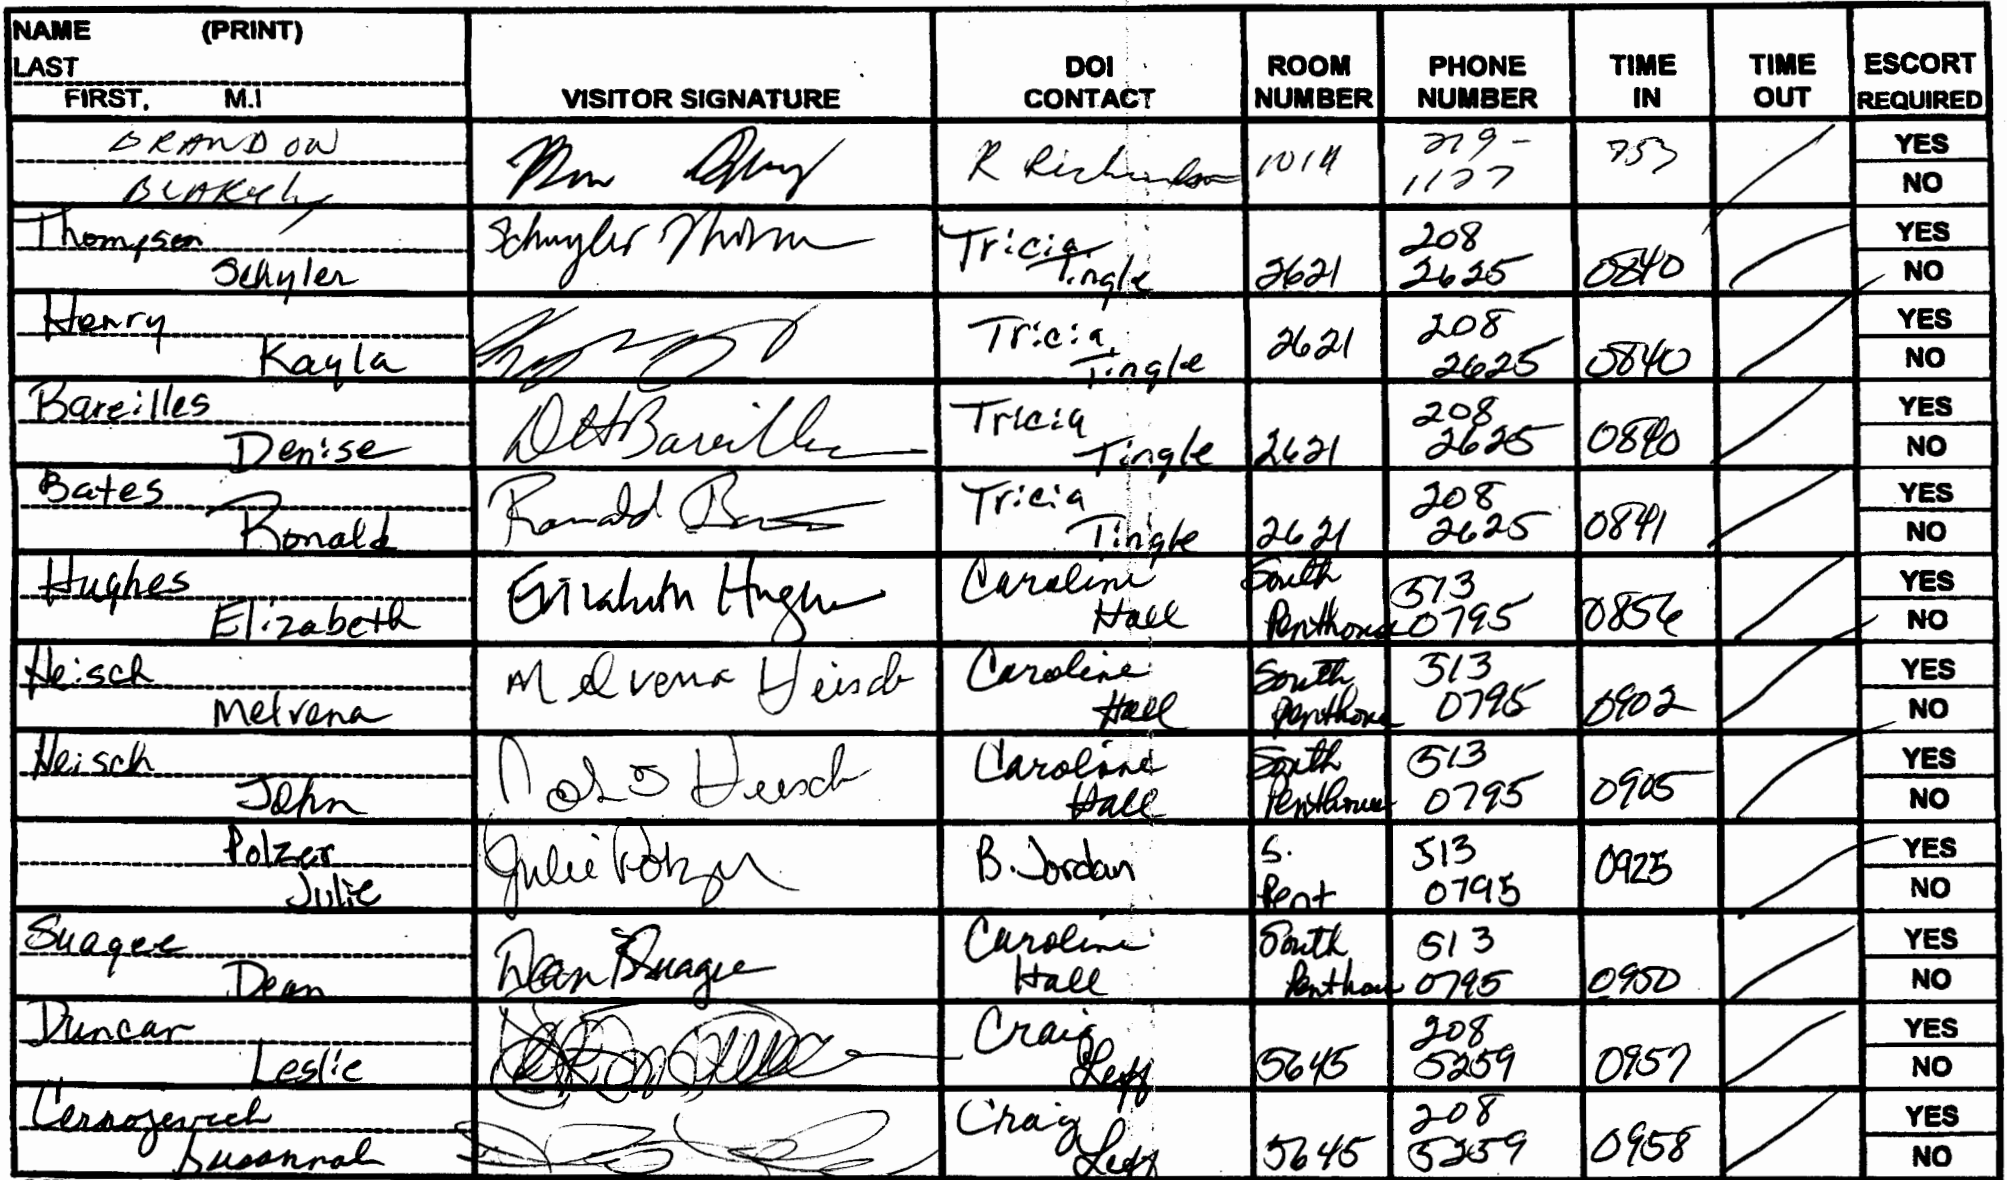 NAME (PRINT)
LAST
FIRST, M.I
VISITOR SIGNATURE
DOI
CONTACT
ROOM
NUMBER
PHONE
NUMBER
TIME
IN
TIME
OUT
ESCORT
REQUIRED
BRANDON
BLAKELY
R Richardson
1014
219-
1127
753
YES
NO
Thompson
Schyler
Schuyler
Tricia
Tingle
2621
208
2625
0840
YES
NO
Henry
Kayla
Tricia
Tingle
2621
208
2625
0840
YES
NO
Bareilles
Denise
Bareilles
Tricia
Tingle
2621
208
2625
0840
YES
NO
Bates
Ronald
Ronald
Tricia
Tingle
2621
208
2625
0841
YES
NO
Hughes
Elizabeth
Elizabeth Hughes
Caroline
Hall
South
Penthouse
513
0795
0856
YES
NO
Heisch
Melvena
Melvena Heisch
Caroline
Hall
South
Penthouse
513
0795
0902
YES
NO
Heisch
John
Heisch
Caroline
Hall
South
Penthouse
513
0795
0905
YES
NO
Polzer
Julie
Julie Polzer
B. Jordan
S.
Pent
513
0795
0925
YES
NO
Suagee
Dean
Dean Suagee
Caroline
Hall
South
Penthouse
513
0795
0950
YES
NO
Duncan
Leslie
Craig
Leff
5645
208
5259
0957
YES
NO
Cernojevich
Susannah
Craig
Leff
5645
208
5259
0958
YES
NO